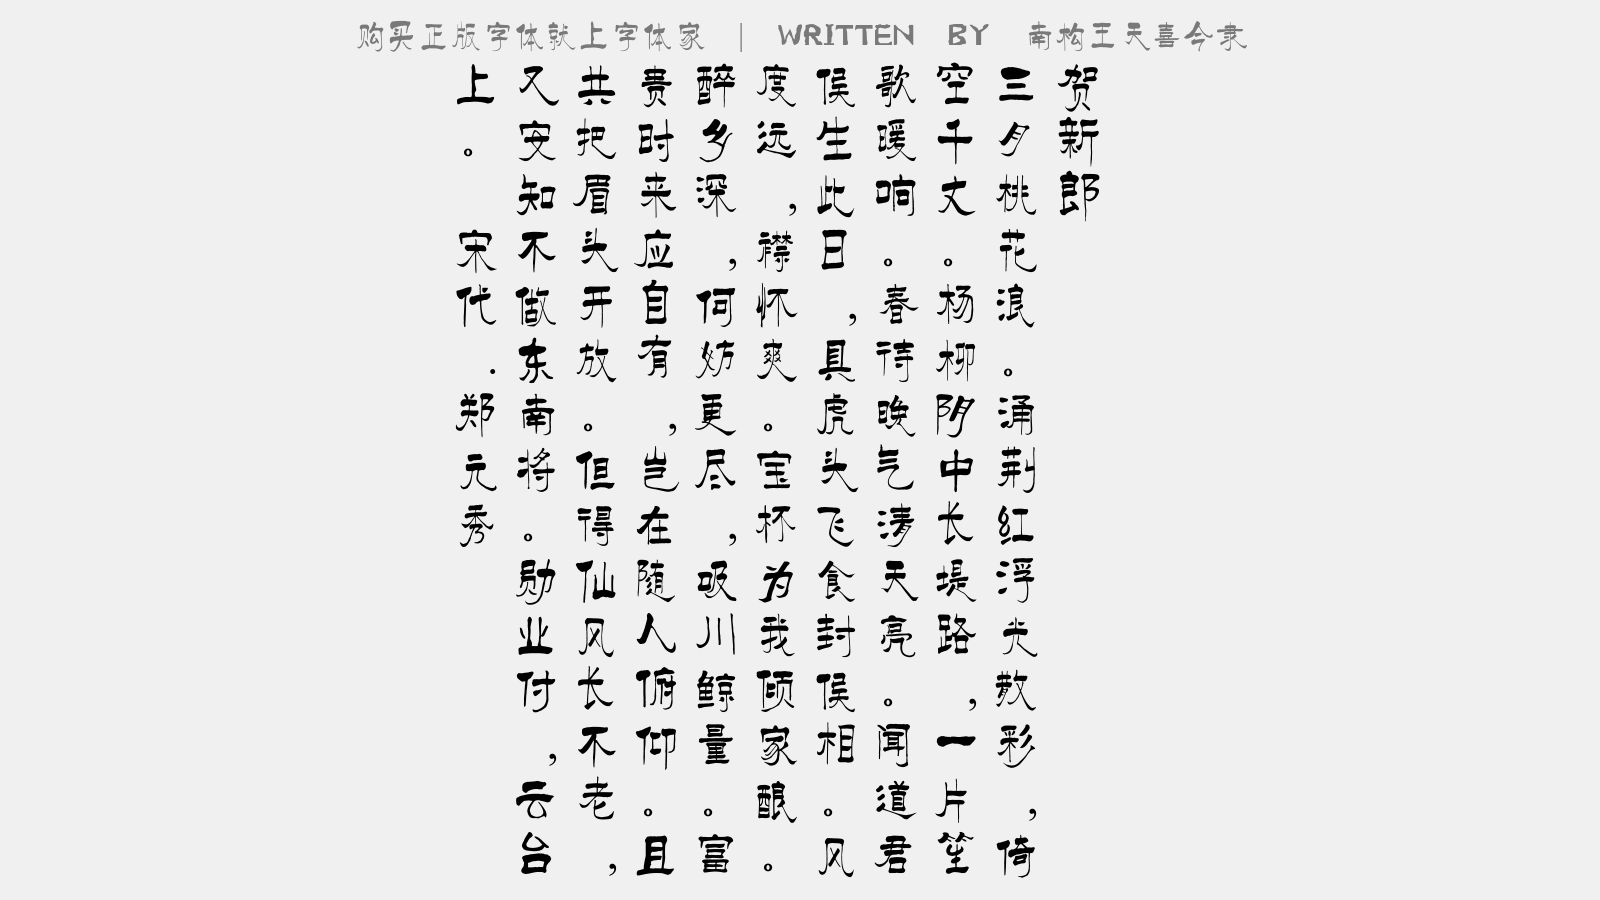 购买正版字体就上字体家 | WRITTEN BY 南构王天喜今隶
贺新郎
三月桃花浪。涌荆红浮光散彩，倚
空千丈。杨柳阴中长堤路，一片笙
歌暖响。春待晚气清天亮。闻道君
侯生此日，具虎头飞食封侯相。风
度远，襟怀爽。宝杯为我倾家酿。
醉乡深，何妨更尽，吸川鲸量。富
贵时来应自有，岂在随人俯仰。且
共把眉头开放。但得仙风长不老，
又安知不做东南将。勋业付，云台
上。 宋代．郑元秀